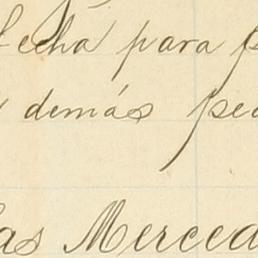 fecha para p
demás pe
as Merced